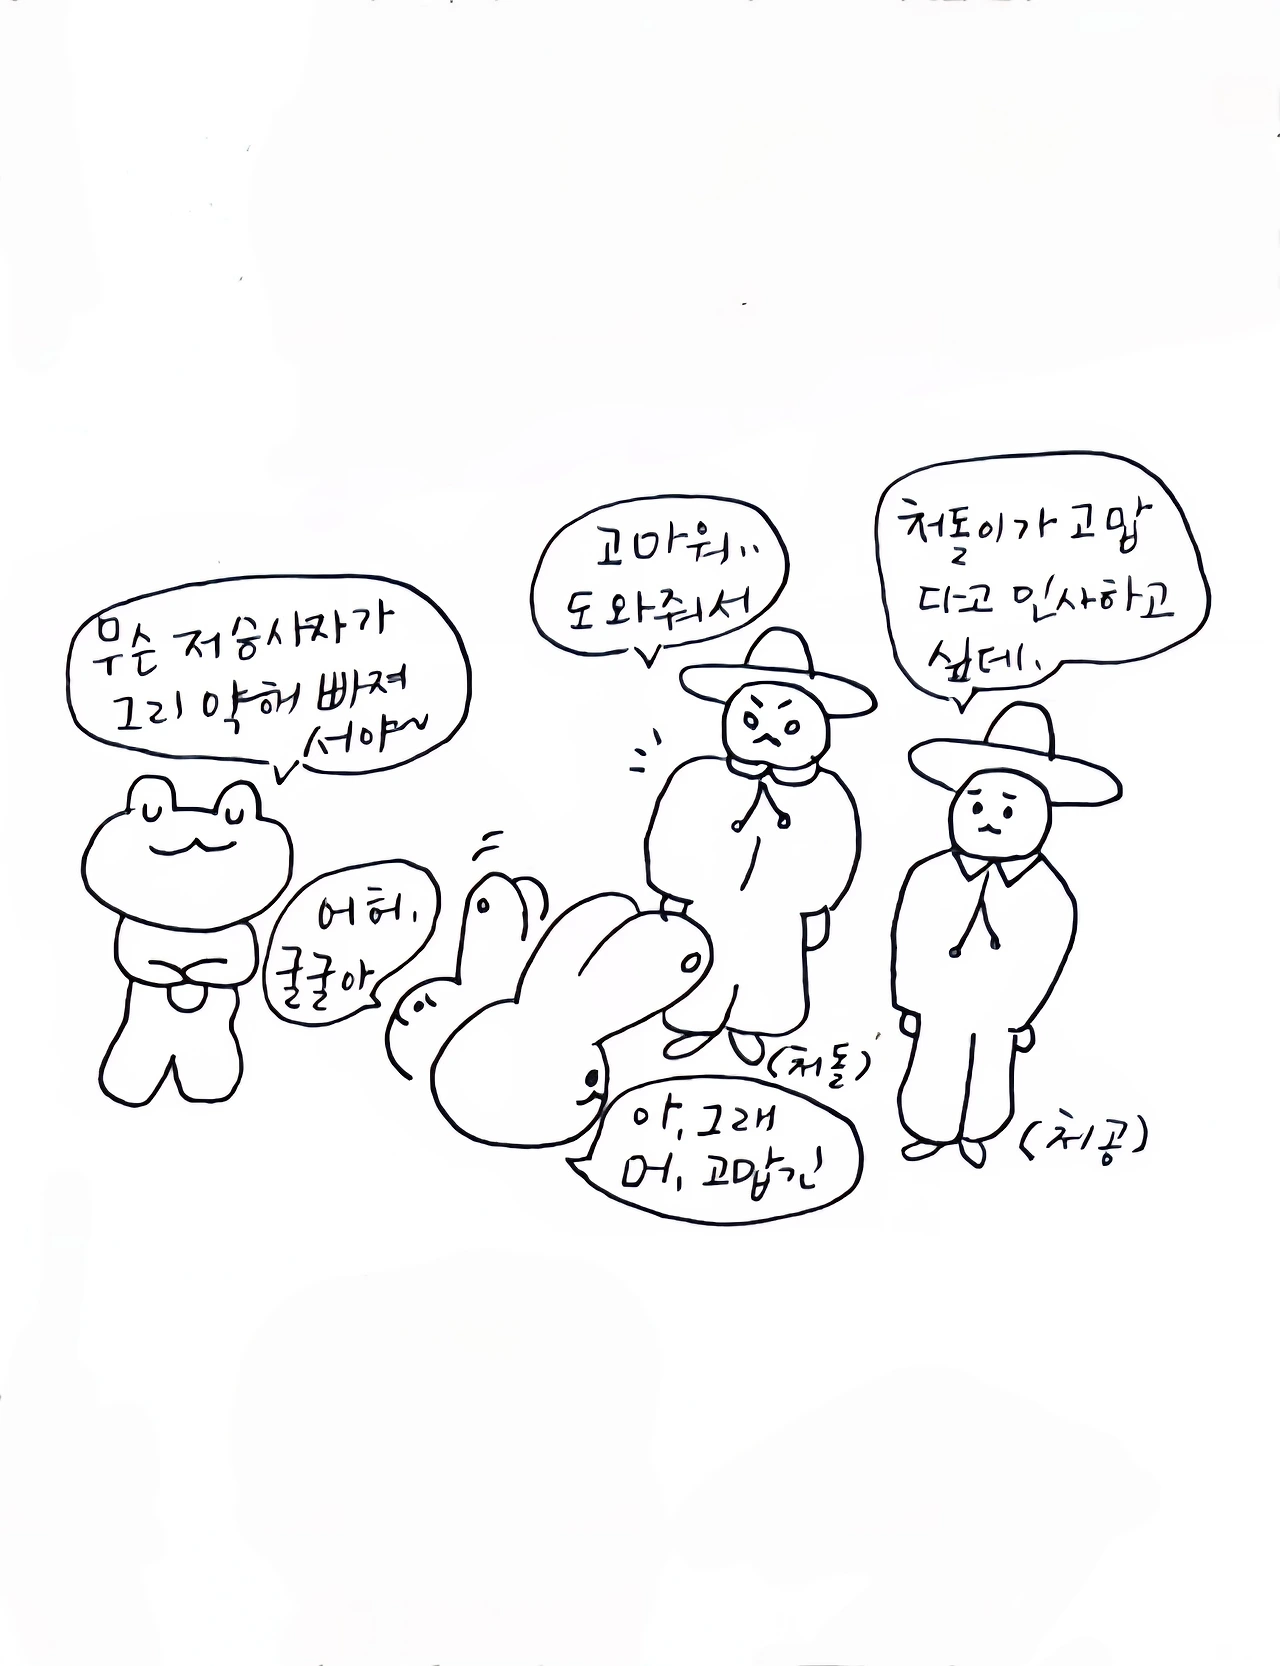 무슨 저승사자가
그리 약해 빠져
서야~
고마워..
도와줘서
처돌이가 고맙
다고 인사하고
싶데.
어허,
굴굴아
(처돌)
아, 그래
머, 고맙긴
(처공)